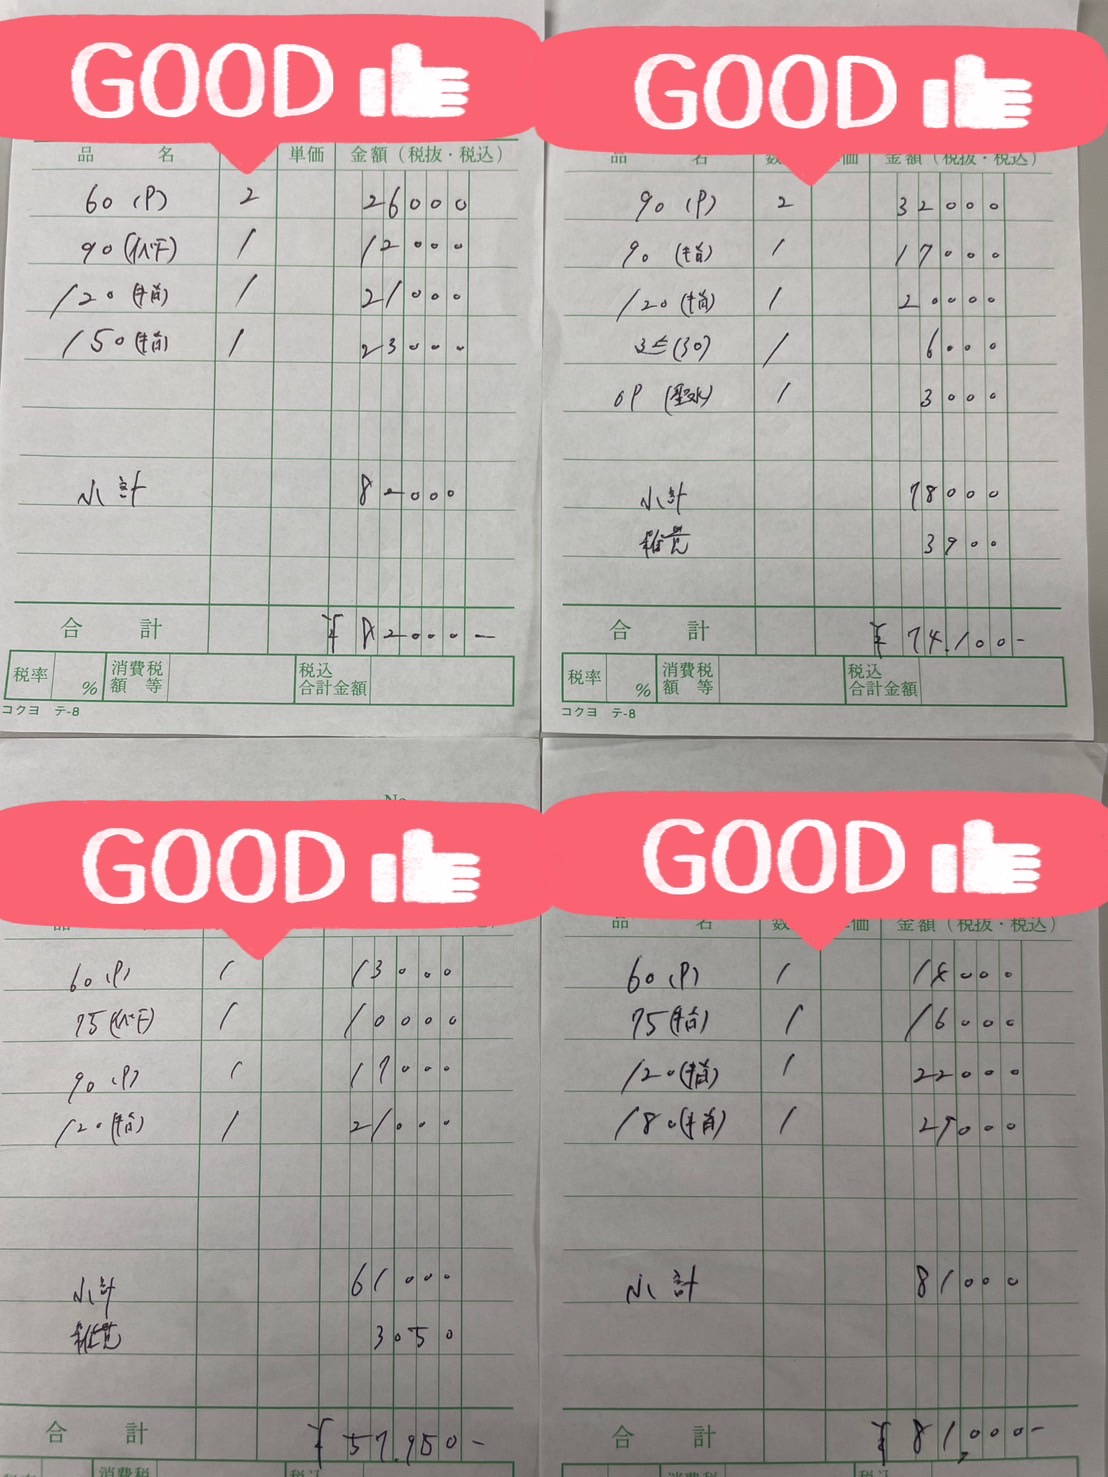 GOOD
品 名 単価 金額（税抜・税込）
60 (P) 2 26000
90 (イベ下) 1 12000
120 (指) 1 21000
150 (指) 1 23000
小計 82000
合 計 ¥82000-
税率 % 消費税額等 税込合計金額
コクヨ テ-8
GOOD
品 名 数 価 金額（税抜・税込）
90 (P) 2 32000
90 (指) 1 17000
120 (指) 1 20000
延(30) 1 6000
OP (聖水) 1 3000
小計 78000
雑費 3900
合 計 ¥74,100-
税率 % 消費税額等 税込合計金額
コクヨ テ-8
No
GOOD
60 (P) 1 13000
75 (イベ下) 1 10000
90 (P) 1 17000
120 (指) 1 21000
小計 61000
雑費 3050
合 計 ¥57,950-
消費税 税込
GOOD
品 名 数 価 金額（税抜・税込）
60 (P) 1 14000
75 (指) 1 16000
120 (指) 1 22000
180 (指) 1 29000
小計 81000
合 計 ¥81,000-
消費税 税込